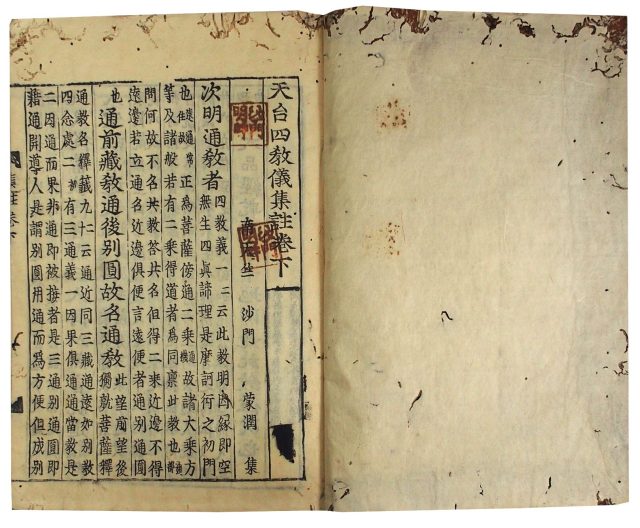 天台四敎儀集註卷下
南天竺　沙門　蒙潤　集
次明通敎者四敎義一二云此敎明因緣即空
無生四眞諦理是摩訶衍之初門
也正爲菩薩傍通二乘故諸大乘方
等及諸般若有二乘得道者爲同禀此敎也
問何故不名共敎答共名但得二乘近邊不得
遠邊若立通名近邊俱便言遠便者通別通圓
也通前藏敎通後別圓故名通敎此望前望後
獨就菩薩釋
通敎名釋籤九十云通近同三藏通遠如別敎
四念處二有三通義一因果俱通通當敎是
二因通而果非通即被接者是三通別通圓即
藉通開導人是謂別圓用通而爲方便但成別